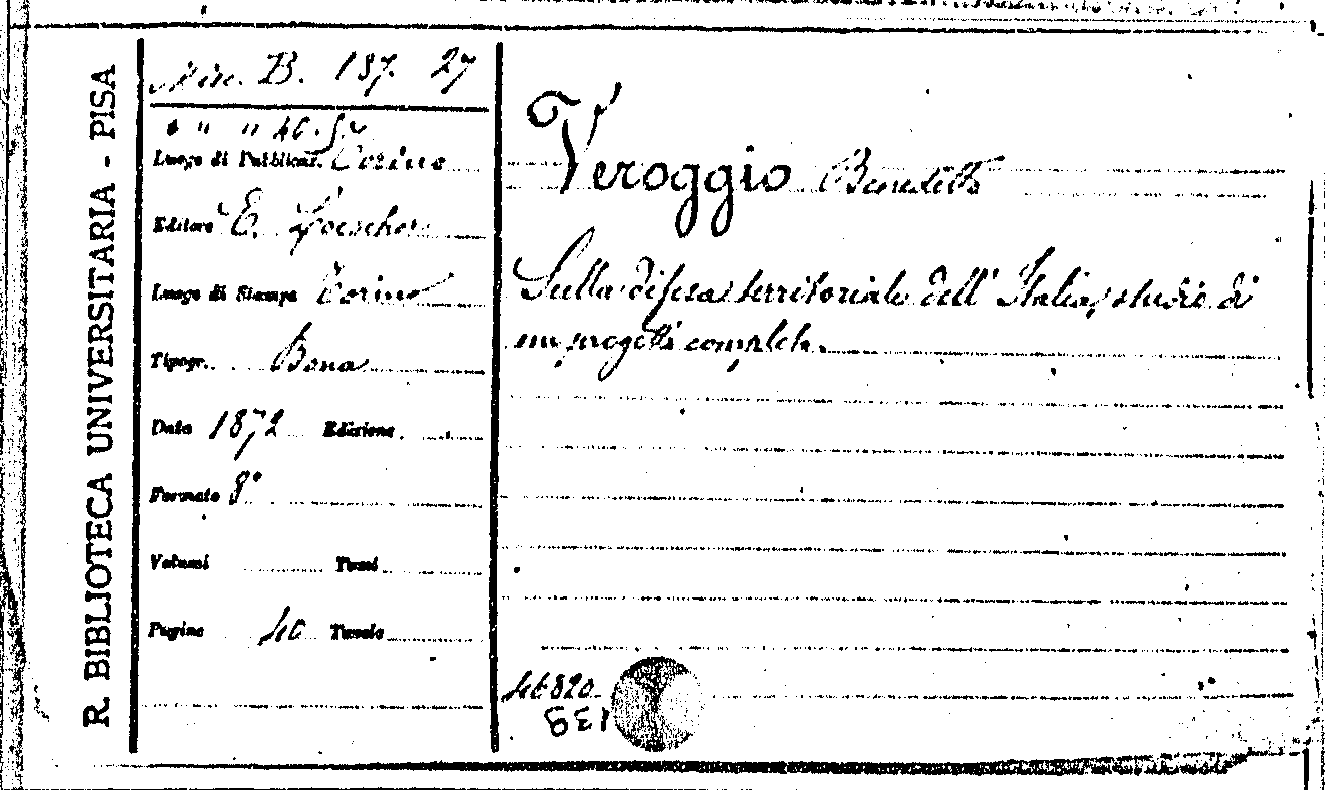 R. BIBLIOTECA UNIVERSITARIA - PISA
Misc. B. 187. 27
" " " 46.
Luogo di Pubblicaz. Torino
Editore E. Loescher
Luogo di Stampa Torino
Tipogr. Bona
Data 1872 Edizione
Formato 8°
Volumi Tomi
Pagine 40 Tavole
Veroggio Benedetto
Sulla difesa territoriale dell' Italia, studio di
un progetto completo.
46820
138